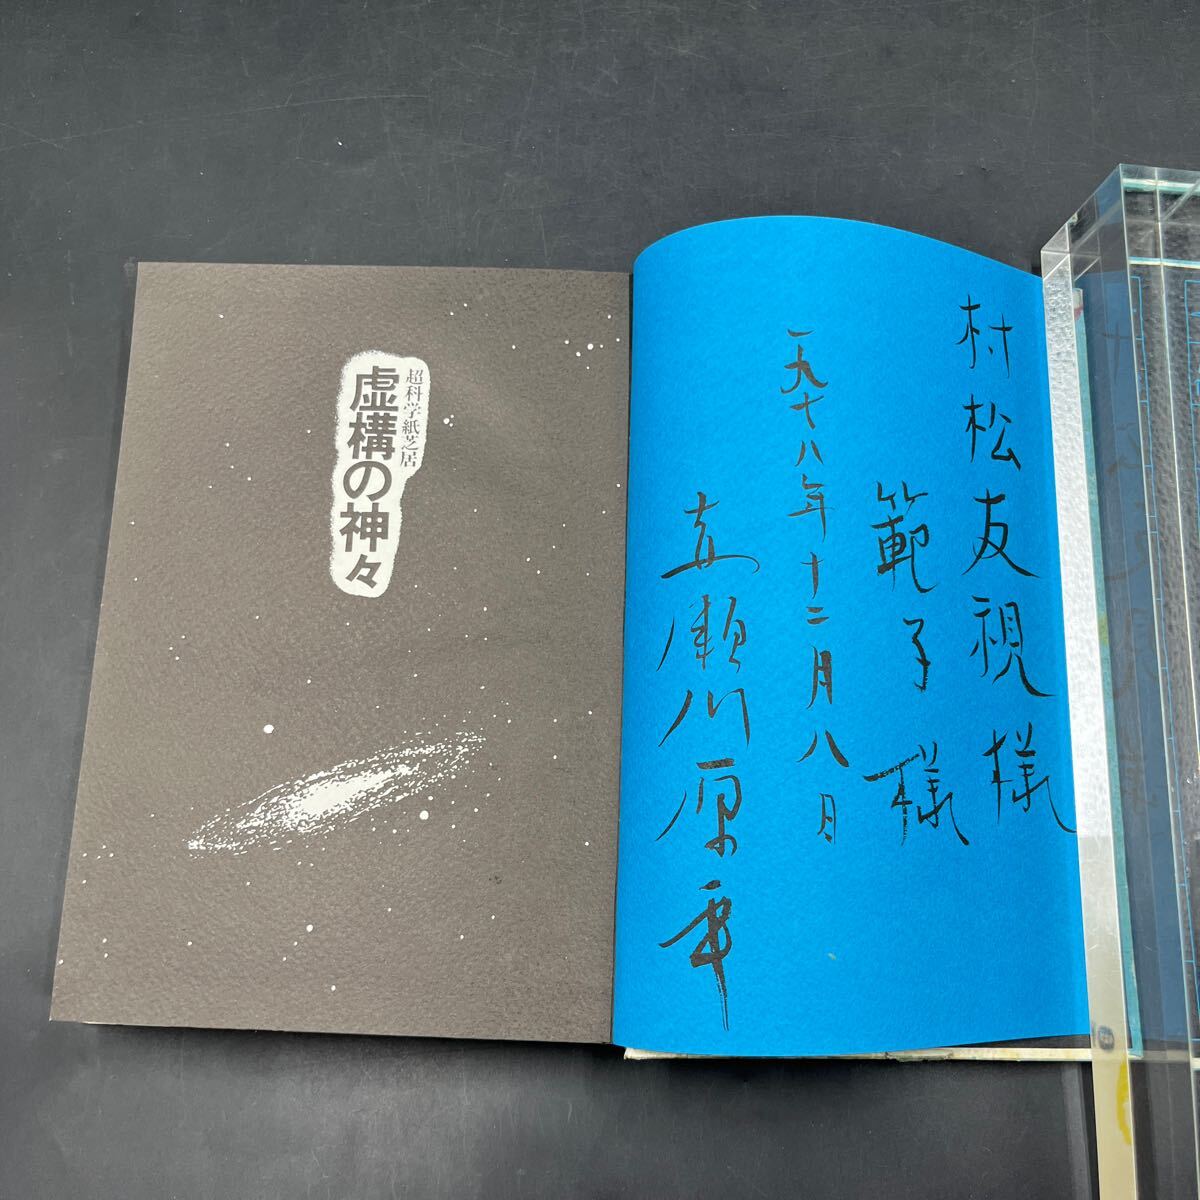 村松友視様
範子様
一九七八年十二月八日
赤瀬川原平
超科学紙芝居
虚構の神々